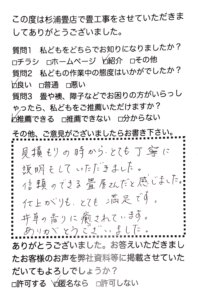 この度は杉浦畳店で畳工事をさせていただきま
してありがとうございました。
質問1 私どもをどちらでお知りになりましたか？
□チラシ □ホームページ ☑紹介 □その他
質問2 私どもの作業中の態度はいかがでしたか？
☑良い □普通 □悪い
質問3 畳や襖、障子などでお困りの方がいらっし
ゃったら、私どもをご推薦いただけますか？
☑推薦できる □推薦できない □分からない
その他、ご意見がございましたらお書き下さい。
見積もりの時から、とても丁寧に
説明をしていただきました。
信頼のできる畳屋さんだと感じました。
仕上がりも、とても満足です。
井草の香りに癒されています。
ありがとうございました。
ありがとうございました。お答えいただきまし
たお客様のお声を弊社資料等に掲載させていた
だいてもよろしでしょうか？
□許可する ☑匿名なら □許可しない